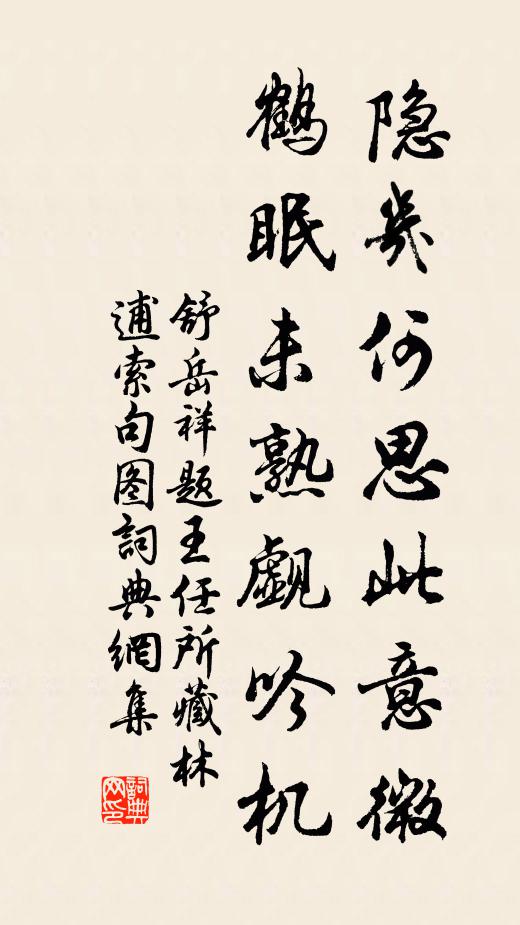 隐几何思此意微
鹤眠未熟觑吟机
舒岳祥题王任所藏林
逋索句图詞典網集
詞典
网印